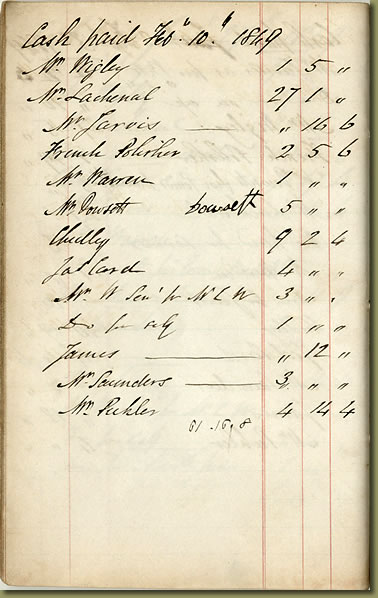 Cash paid Feb" 10." 1849
Mr. Wigley 1 5 "
Mr. Lachenal 27 1 "
Mr. Jarvis — " 16 6
French Polisher 2 5 6
Mr. Warren 1 " "
Mr. Dowsett Dowsett 5 " "
Chidley 9 2 4
Jas Card 4 " "
Mr. W Senr 3 " "
Do for 1 " "
James — " 12 "
Mr. Saunders — 3 " "
Mr. Pickler 4 14 4
61 . 16 , 8